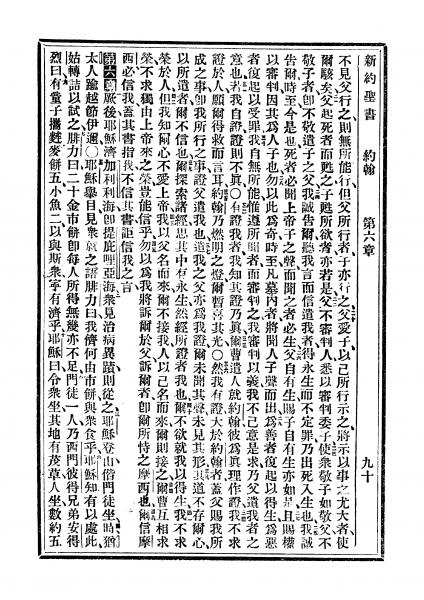 新約聖書　約翰　第六章　九十
不見父行之則無所能行但父所行者子亦行之父愛子以己所行示之將示以事之尤大者使
爾駭矣父起死者而甦之子甦所欲者亦若是父不審判人悉以審判委子使衆敬子如敬父不
敬子者卽不敬遣子之父我誠告爾聽我言而信遣我者得永生而不定罪乃出死入生也我誠
告爾時至今是也死者必聞上帝子之聲而聞之者必生父自有生賜子自有生亦如是且賜權
以審判因其爲人子也勿以此爲奇時至凡墓內者將聞人子聲而出爲善者復起以得生爲惡
者復起以受罪我自無所能惟遵所聞者而審判之我審判以義我不己意是求乃父遣我者之
意也若我自證證則不眞○有證我者我知其證乃眞爾曹遣人就約翰彼爲眞理作證我不求
證於人願爾得救而言耳約翰乃燃明之燈爾暫喜其光○然我有證大於約翰者蓋父賜我所
成之事卽我所行之事證父遣我也遣我之父亦爲我證爾未聞其聲未見其形其道不存爾心
以所遣者爾不信也爾探索諸經思其中有永生然經所證者我也爾不欲就我以得生我不求
榮於人但我知爾心不愛上帝我以父名而來爾不接我人以己名而來爾則接之爾曹互相求
榮不求獨由上帝來之榮豈能信乎勿以爲我將訴爾於父訴爾者卽爾所恃之摩西也爾信摩
西必信我蓋其書指我不信其書詎信我之言
第六章厥後耶穌濟加利利海卽提庇哩亞海衆見治病異蹟則從之耶穌登山偕門徒坐時猶
太人踰越節伊邇○耶穌舉目見衆就之語腓力曰我儕何由市餅與衆食乎耶穌知有以處此
姑轉詰以試之腓力曰二十金市餅卽每人所得無幾亦不足門徒一人乃西門彼得兄弟安得
烈曰有童子攜麰麥餅五小魚二以與斯衆寧有濟乎耶穌曰令衆坐其地有茂草人坐數約五